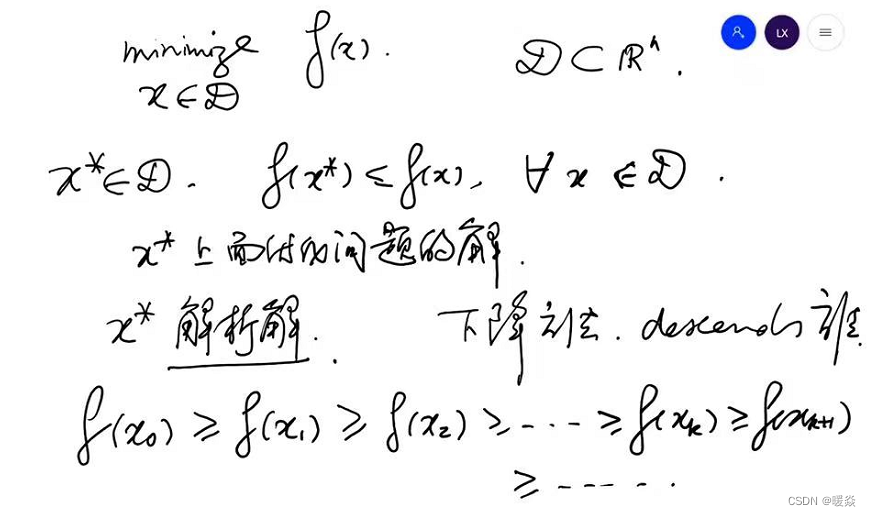 minimize f(x). D ⊂ ℝⁿ.
x ∈ D
LX
x* ∈ D. f(x*) ≤ f(x), ∀ x ∈ D.
x* 上面 问题的解.
x* 解析解. 下降算法. descends 算法.
f(x₀) ≥ f(x₁) ≥ f(x₂) ≥ ··· ≥ f(xₖ) ≥ f(xₖ₊₁)
≥ ······
CSDN @暖焱